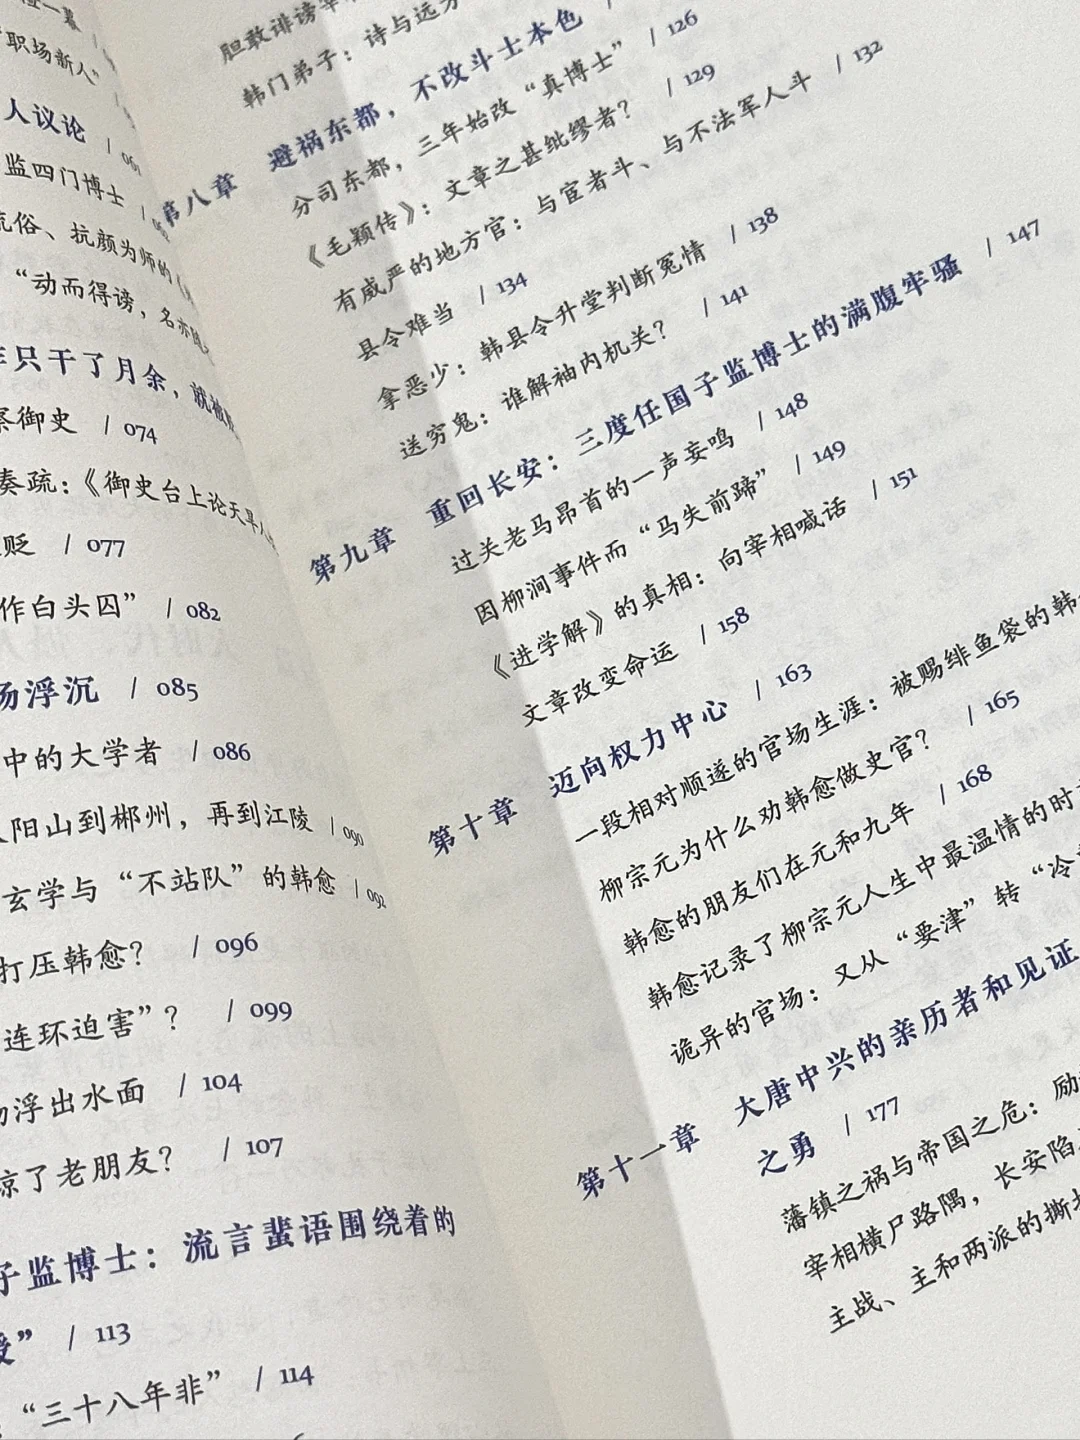 职场新人”
人议论 / 06
监四门博士 / 062
流俗、抗颜为师的《
“动而得谤，名亦随
只干了月余，就被贬
察御史 / 074
奏疏：《御史台上论天旱人
贬 / 077
作白头囚” / 082
场浮沉 / 085
中的大学者 / 086
阳山到郴州，再到江陵 / 090
玄学与“不站队”的韩愈 / 092
打压韩愈？ / 096
连环迫害”？ / 099
浮出水面 / 104
谅了老朋友？ / 107
子监博士：流言蜚语围绕着的
” / 113
“三十八年非” / 114
胆敢诽谤宰
韩门弟子：诗与远方
第八章 避祸东都，不改斗士本色
分司东都，三年始改“真博士” / 126
《毛颖传》：文章之甚纰缪者？ / 129
有威严的地方官：与宦者斗、与不法军人斗 / 132
县令难当 / 134
拿恶少：韩县令升堂判断冤情 / 138
送穷鬼：谁解袖内机关？ / 141
第九章 重回长安：三度任国子监博士的满腹牢骚 / 147
过关老马昂首的一声妄鸣 / 148
因柳涧事件而“马失前蹄” / 149
《进学解》的真相：向宰相喊话 / 151
文章改变命运 / 158
第十章 迈向权力中心 / 163
一段相对顺遂的官场生涯：被赐绯鱼袋的韩
柳宗元为什么劝韩愈做史官？ / 165
韩愈的朋友们在元和九年 / 168
韩愈记录了柳宗元人生中最温情的时
诡异的官场：又从“要津”转“冷
第十一章 大唐中兴的亲历者和见证
之勇 / 177
藩镇之祸与帝国之危：励
宰相横尸路隅，长安陷
主战、主和两派的撕